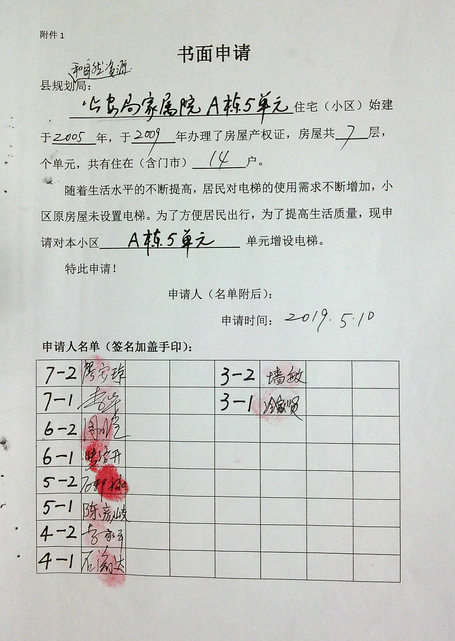 附件 1
书面申请
和自然资源
县规划局:
公安局家属院 A栋5单元住宅（小区）始建
于2005年，于2009年办理了房屋产权证，房屋共7层，
个单元，共有住在（含门市）14户。
随着生活水平的不断提高，居民对电梯的使用需求不断增加，小
区原房屋未设置电梯。为了方便居民出行，为了提高生活质量，现申
请对本小区A栋5单元单元增设电梯。
特此申请！
申请人（名单附后）：
申请时间：2019.5.10
申请人名单（签名加盖手印）：
7-2 3-2
7-1 3-1
6-2
6-1
5-2
5-1
4-2
4-1